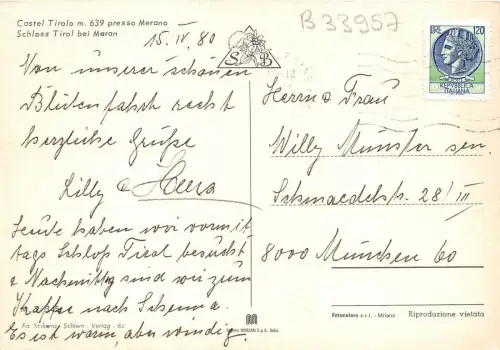 Castel Tirolo m. 639 presso Merano
Schloss Tirol bei Meran
15. IV. 80
B 33957
S B
LIRE 20
REPVBBLICA
ITALIANA
Von unserer schönen
Blütenfahrt recht
herzliche Grüße
Lilly &
Heute haben wir vormit-
tags Schloß Tirol besucht
& Nachmittag sind wir zum
Kaffee nach Schenna.
Es ist warm, aber windig.
Herrn & Frau
Willy Münster sen.
28/III
8000 München 60
Verlag - Bz
Fotocolore s.r.l. - Milano
Riproduzione vietata